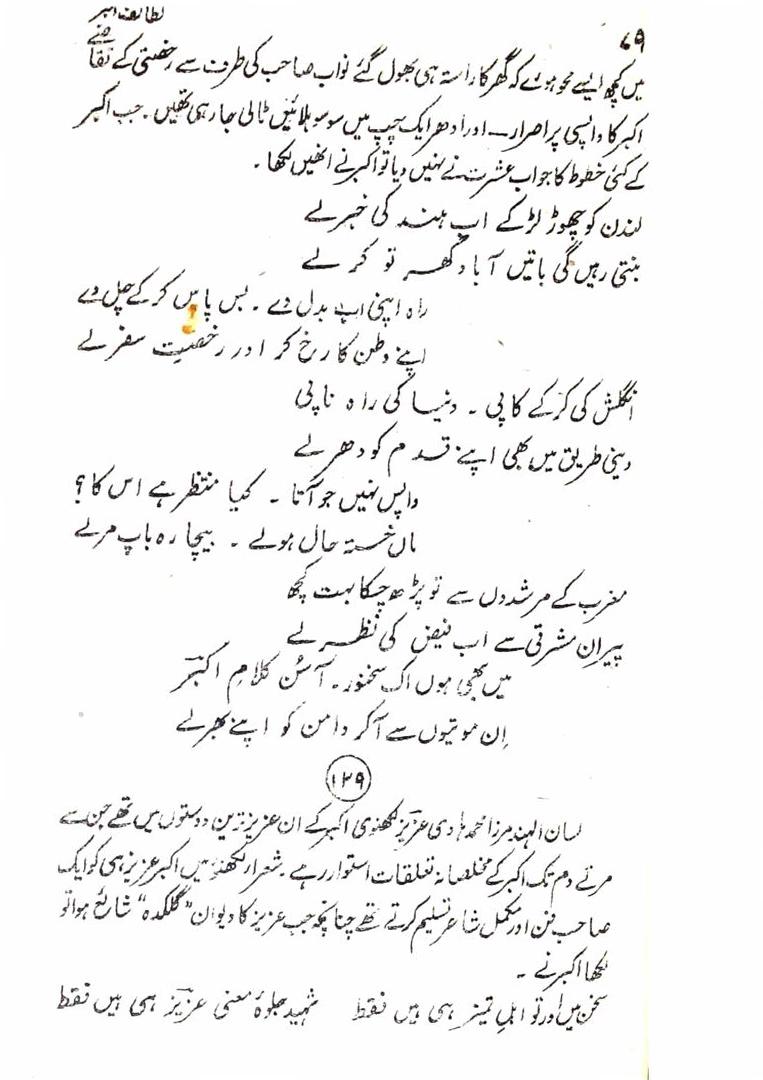 لطائف اکبر
۶۹
میں کچھ ایسے محو ہوئے کہ گھر کا راستہ ہی بھول گئے نواب صاحب کی طرف سے رخصتی کے تقاضے
اکبر کا واپسی پر اصرار ۔ اور اُدھر ایک چپ میں سو سو بلائیں ٹالی جا رہی تھیں ۔ جب اکبر
کے کئی خطوط کا جواب عشرت نے نہیں دیا تو اکبر نے انھیں لکھا ۔
لندن کو چھوڑ لڑکے اب ہند کی خبر لے
بنتی رہیں گی باتیں آباد گھر تو کر لے
راہ اپنی اب بدل دے ۔ بس پاس کر کے چل دے
اپنے وطن کا رخ کر اور رخصت سفر لے
انگلش کی کر کے کاپی ۔ دنیا کی راہ ناپی
دینی طریق میں بھی اپنے قدم کو دھر لے
واپس نہیں جو آتا ۔ کیا منتظر ہے اس کا؟
ماں خستہ حال ہولے ۔ بیچارہ باپ مرلے
مغرب کے مرشدوں سے تو پڑھ چکا بہت کچھ
پیران مشرقی سے اب فیض کی نظر لے
میں بھی ہوں اک سخنور ۔ آ سُن کلام اکبر
اِن موتیوں سے آکر دامن کو اپنے بھر لے
۱۲۹
لسان الہند مرزا محمد ہادی عزیز لکھنوی اکبر کے ان عزیز ترین دوستوں میں تھے جن سے
مرتے دم تک اکبر کے مخلصانہ تعلقات استوار رہے ۔ شعراء لکھنؤ میں اکبر عزیز ہی کو ایک
صاحب فن اور مکمل شاعر تسلیم کرتے تھے چنانچہ جب عزیز کا دیوان "گلکدہ" شائع ہوا تو
لکھا اکبر نے ۔
سخن میں اور تو اہل تمیز ہی ہیں فقط شہید جلوۂ معنی عزیز ہی ہیں فقط